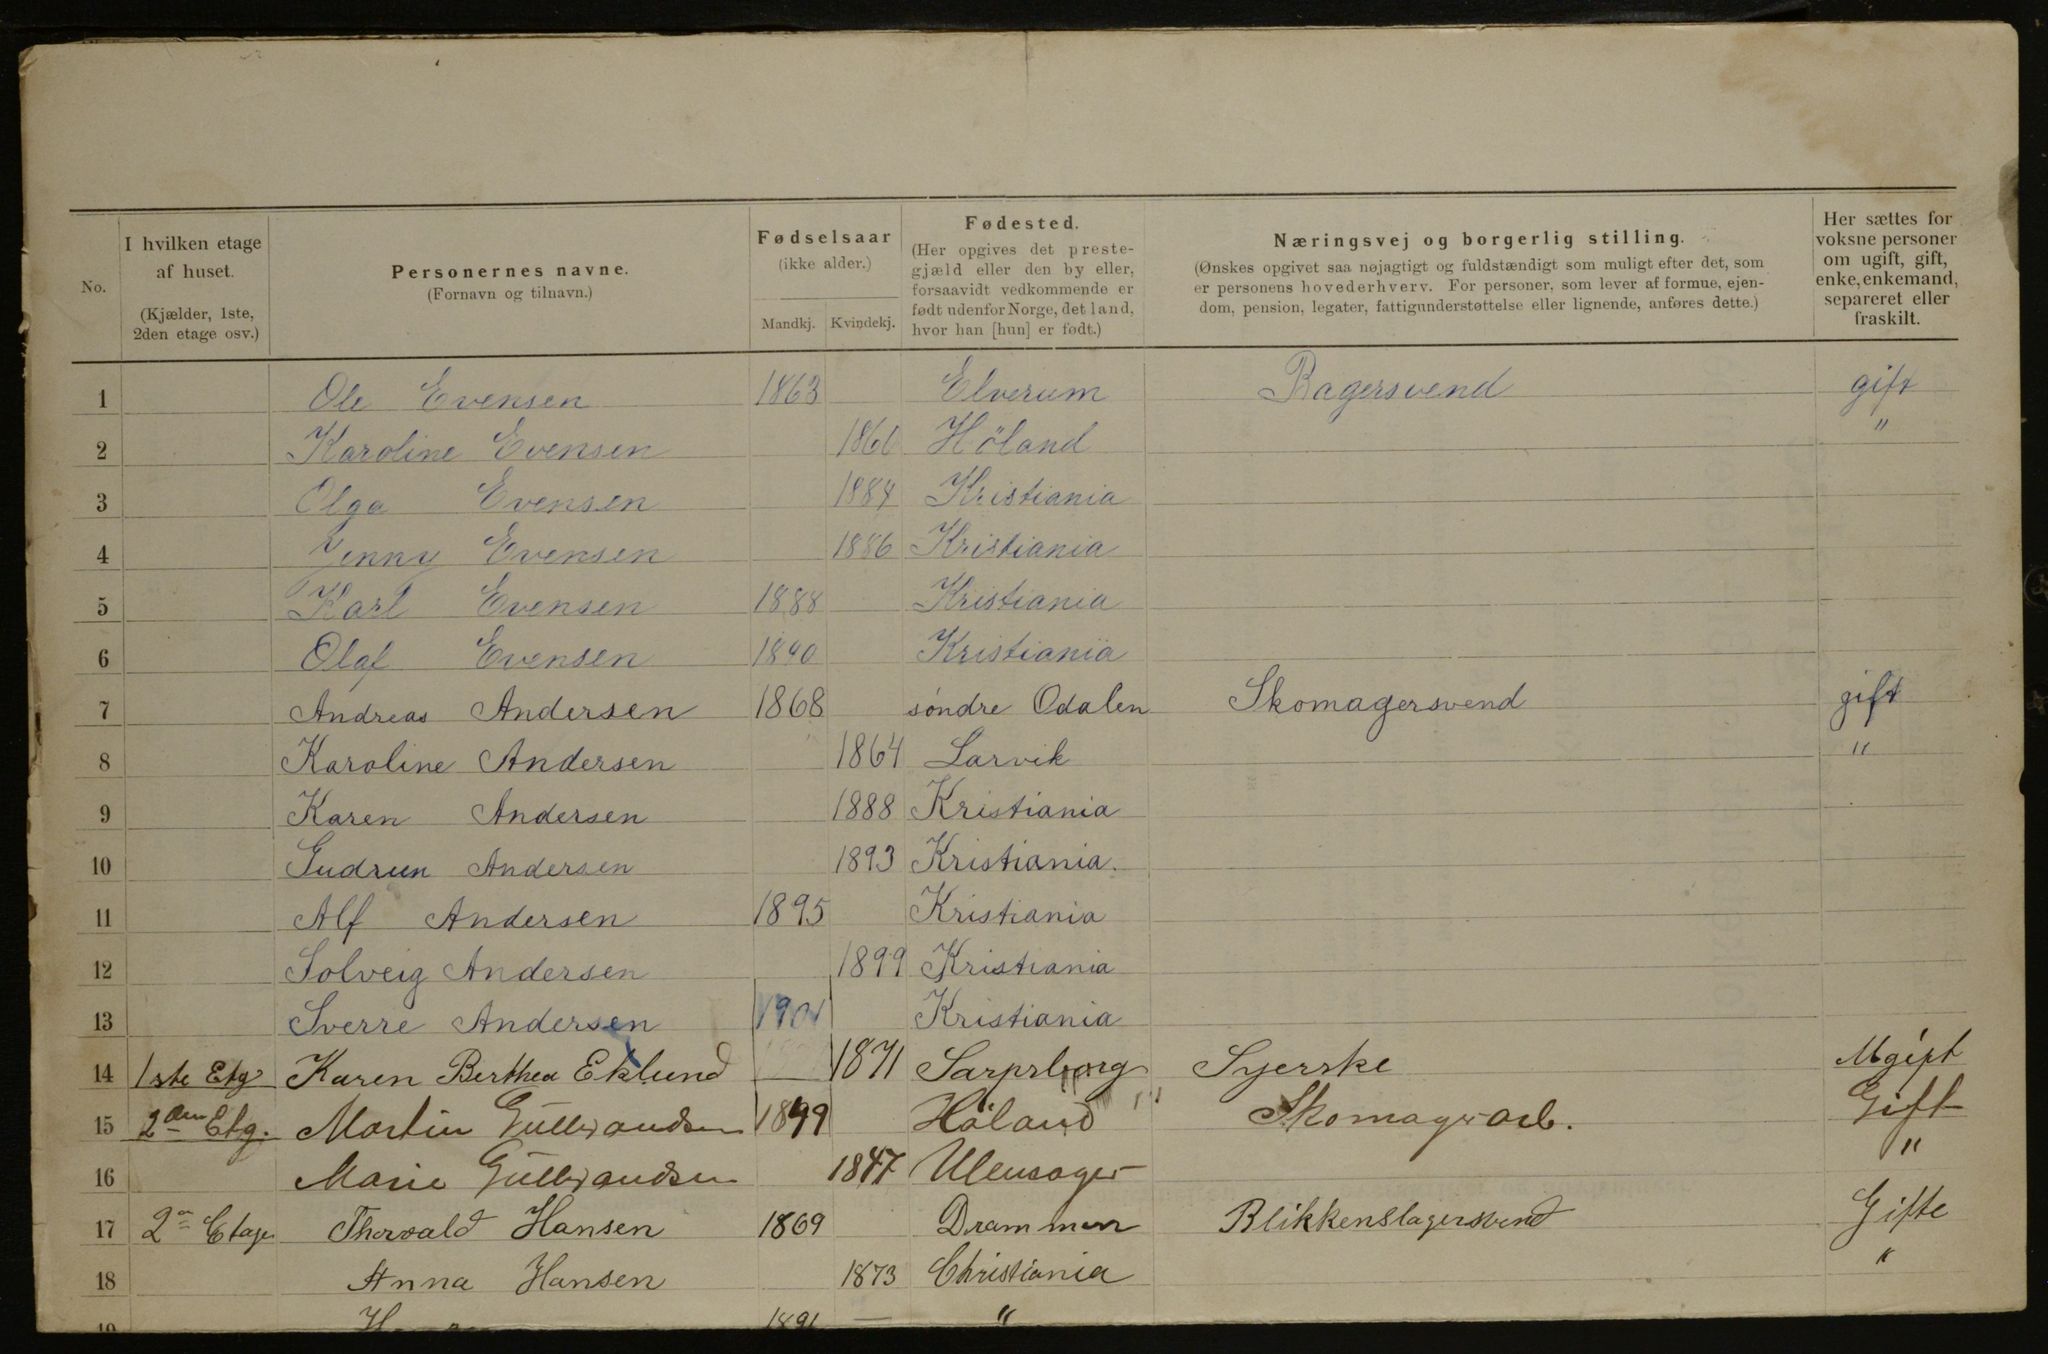 No.
I hvilken etage af huset.
(Kjælder, 1ste, 2den etage osv.)
Personernes navne.
(Fornavn og tilnavn.)
Fødselsaar
(ikke alder.)
Mandkj. Kvindekj.
Fødested.
(Her opgives det preste-
gjæld eller den by eller,
forsaavidt vedkommende er
født udenfor Norge, det land,
hvor han [hun] er født.)
Næringsvej og borgerlig stilling.
(Ønskes opgivet saa nøjagtigt og fuldstændigt som muligt efter det, som
er personens hovederhverv. For personer, som lever af formue, ejen-
dom, pension, legater, fattigunderstøttelse eller lignende, anføres dette.)
Her sættes for
voksne personer
om ugift, gift,
enke, enkemand,
separeret eller
fraskilt.
1 Ole Evensen 1863 Elverum Bagersvend gift
2 Karoline Evensen Höland "
3 Olga Evensen 1884 Kristiania
4 Jenny Evensen 1886 Kristiania
5 Karl Evensen 1888 Kristiania
6 Olaf Evensen 1890 Kristiania
7 Andreas Andersen 1868 söndre Odalen Skomagersvend gift
8 Karoline Andersen 1864 Larvik "
9 Karen Andersen 1888 Kristiania
10 Gudrun Andersen 1893 Kristiania.
11 Alf Andersen 1895 Kristiania
12 Solveig Andersen 1899 Kristiania
13 Sverre Andersen 1901 Kristiania
14 1ste Etg Karen Berthea Eklund 1871 Sarpsborg Syerske Ugift
15 2den Etg. Martin Gulbrandsen Höland Skomagerarb. Gift
16 Marie Gulbrandsen 1847 Ullensager "
17 2en Etage Thorvald Hansen 1869 Drammen Blikkenslagersvend Gifte
18 Anna Hansen 1873 Christiania "
19 1891 — "